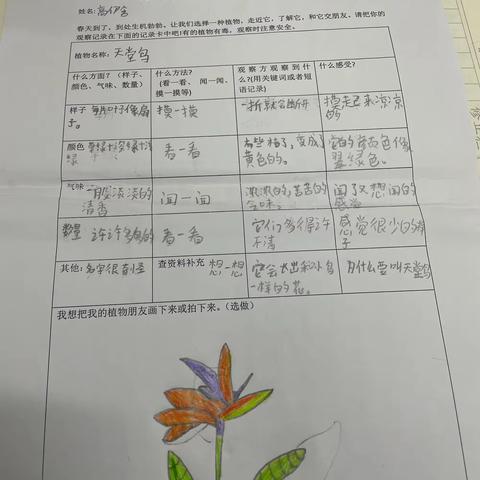 姓名:
春天到了,到处生机勃勃,让我们选择一种植物,走近它,了解它,和它交朋友。请把你的
观察记录在下面的记录卡中吧!有的植物有毒,观察时注意安全。
植物名称: 天堂鸟
什么方面?(样子、颜色、气味、数量)
什么方法?(看一看、闻一闻、摸一摸等)
观察方观察到什么?(用关键词或者短语记录)
什么感受?
样子
摸一摸
摸起来凉凉的
颜色
看一看
有些枯了,变成了黄色的。
气味 一股淡淡的清香
闻一闻
闻了又想闻的感觉
数量 许许多多的
看一看
它们多得数不清
感觉很少的样子
其他: 名字很奇怪
查资料补充 想一想
它会长出和小鸟一样的花。
为什么要叫天堂鸟
我想把我的植物朋友画下来或拍下来。(选做)